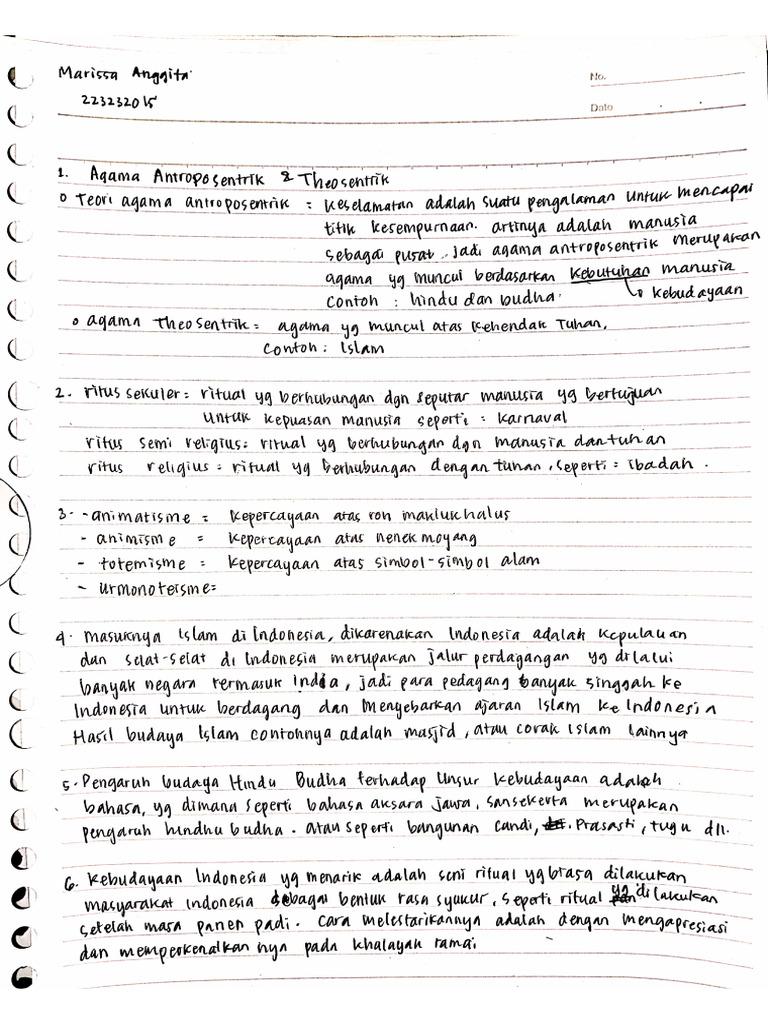 Marissa Anggita
223232015
No.
Date
1. Agama Antroposentrik & Theosentrik
o Teori agama antroposentrik = Keselamatan adalah suatu pengalaman untuk mencapai
titik kesempurnaan. artinya adalah manusia
sebagai pusat. jadi agama antroposentrik merupakan
agama yg muncul berdasarkan kebutuhan manusia
Contoh : hindu dan budha. ↳ kebudayaan
o agama Theosentrik = agama yg muncul atas kehendak Tuhan.
Contoh : Islam
2. ritus sekuler = ritual yg berhubungan dgn seputar manusia yg bertujuan
untuk kepuasan manusia seperti = karnaval
ritus semi religius = ritual yg berhubungan dgn manusia dan tuhan
ritus religius = ritual yg berhubungan dengan tuhan, seperti = ibadah.
3. - animatisme = kepercayaan atas roh makluk halus
- animisme = kepercayaan atas nenek moyang
- totemisme = kepercayaan atas simbol-simbol alam
- urmonoteisme=
4. masuknya Islam di Indonesia, dikarenakan Indonesia adalah kepulauan
dan selat-selat di Indonesia merupakan jalur perdagangan yg dilalui
banyak negara termasuk India, jadi para pedagang banyak singgah ke
Indonesia untuk berdagang dan menyebarkan ajaran Islam ke Indonesia
Hasil budaya Islam contohnya adalah masjid, atau corak Islam lainnya
5. Pengaruh budaya Hindu Budha terhadap unsur kebudayaan adalah
bahasa, yg dimana seperti bahasa aksara jawa, sansekerta merupakan
pengaruh hindhu budha. atau seperti bangunan candi, Prasasti, tugu dll.
6. Kebudayaan Indonesia yg menarik adalah seni ritual yg biasa dilakukan
masyarakat Indonesia sebagai bentuk rasa syukur, seperti ritual yg dilakukan
setelah masa panen padi. Cara melestarikannya adalah dengan mengapresiasi
dan memperkenalkannya pada khalayak ramai